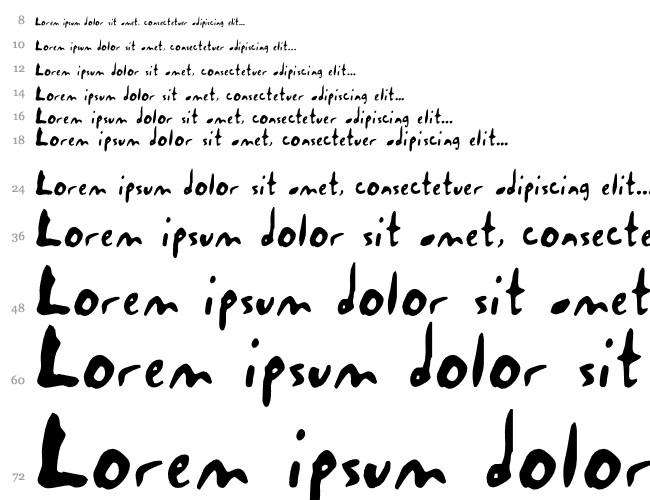 8 Lorem ipsum dolor sit amet, consectetuer adipiscing elit...
10 Lorem ipsum dolor sit amet, consectetuer adipiscing elit...
12 Lorem ipsum dolor sit amet, consectetuer adipiscing elit...
14 Lorem ipsum dolor sit amet, consectetuer adipiscing elit...
16 Lorem ipsum dolor sit amet, consectetuer adipiscing elit...
18 Lorem ipsum dolor sit amet, consectetuer adipiscing elit...
24 Lorem ipsum dolor sit amet, consectetuer adipiscing elit...
36 Lorem ipsum dolor sit amet, consecte
48 Lorem ipsum dolor sit amet
60 Lorem ipsum dolor sit
72 Lorem ipsum dolor